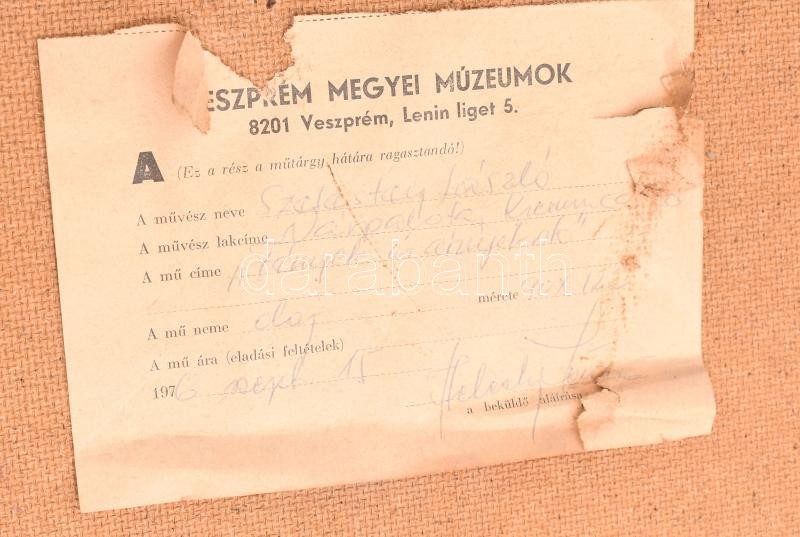 ESZPRÉM MEGYEI MÚZEUMOK
8201 Veszprém, Lenin liget 5.
A (Ez a rész a műtárgy hátára ragasztandó!)
A művész neve László
A művész lakcíme Várpalota,
A mű címe „Fények és árnyékok"
mérete 90x
A mű neme olaj
A mű ára (eladási feltételek)
1976 szept. 15
a beküldő aláírása
darabanth